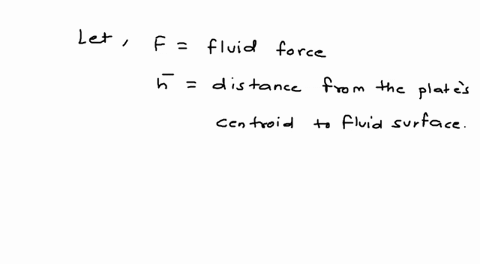 Let, F = fluid force
h̄ = distance from the plate's
centroid to fluid surface.